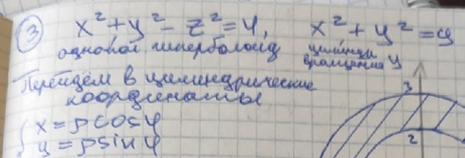 ③ x² + y² - z² = 4, x² + y² = 9
однопол гиперболоид цилиндр вращения
Перейдём в цилиндрические
координаты
3
{ x = ρcosφ
2
y = ρsinφ